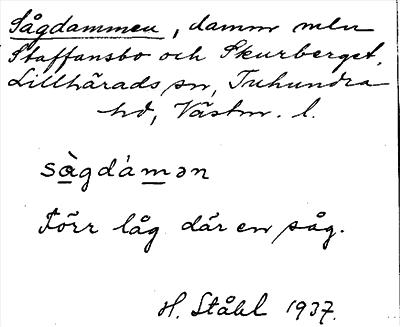 Sågdammen, damm mln
Staffansbo och Skurberget,
Lillhärads sn, Tuhundra
hd, Västm. l.
sàgdámən
Förr låg där en såg.
H. Ståhl 1937.